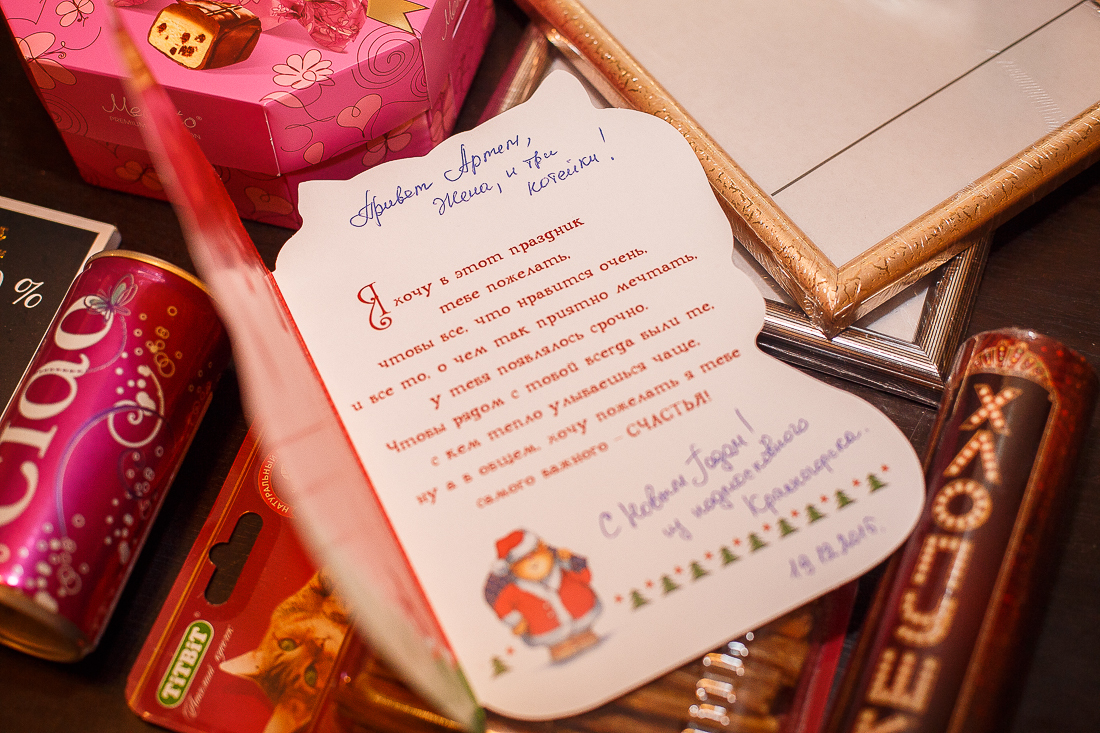 Привет Артем,
Жена, и три
котейки!
Я хочу в этот праздник
тебе пожелать,
чтобы все, что нравится очень,
и все то, о чем так приятно мечтать,
у тебя появлялось срочно.
Чтобы рядом с тобой всегда были те,
с кем тепло улыбаешься чаще,
ну а в общем, хочу пожелать я тебе
самого важного – СЧАСТЬЯ!
С Новым Годом!
из подмосковного
Красногорска.
19.12.2015г.
%
НАТУРАЛЬНЫЙ
TiTBiT
ХЛОПУШКА